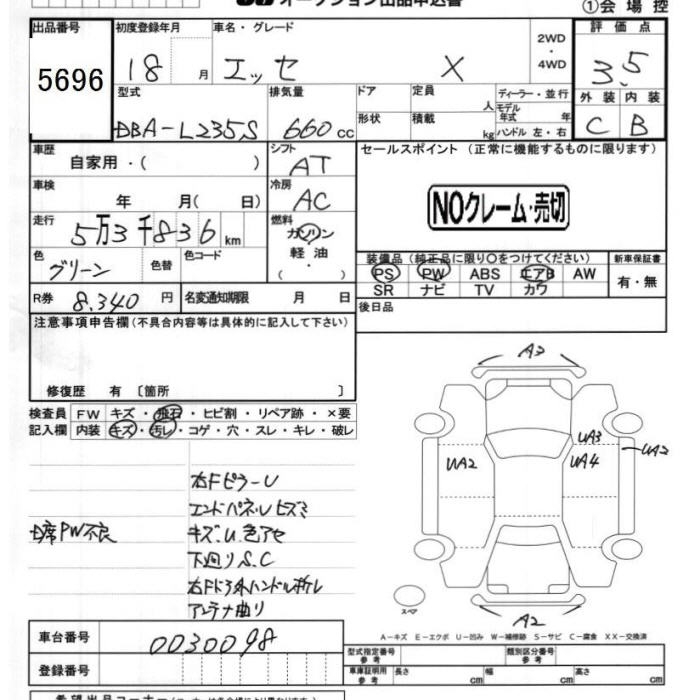 オークション出品申込書
①会場控
出品番号 初度登録年月 車名・グレード 評価点
5696 18 月 エッセ X 2WD・4WD 3.5
型式 排気量 ドア 定員 人 ディーラー・並行 外装 内装
DBA-L235S 660cc 形状 積載 kg モデル年式 年 ハンドル 左・右 C B
車歴 自家用・( ) シフト AT セールスポイント (正常に機能するものに限ります)
車検 年 月( 日) 冷房 AC
NOクレーム・売切
走行 5万3千836km 燃料 ガソリン 軽油 ・( )
色 グリーン 色替 色コード
装備品 (純正品に限り○をつけてください) 新車保証書
PS PW ABS エアB AW 有・無
SR ナビ TV カワ
R券 8,340円 名変通知期限 月 日 後日品
注意事項申告欄(不具合内容等は具体的に記入して下さい)
修復歴 有 〔箇所 〕
検査員記入欄 FW キズ・飛石・ヒビ割・リペア跡・×要
内装 キズ・汚レ・コゲ・穴・スレ・キレ・破レ
A3
UA3
UA2 UA4 UA2
右FピラーU
エンドパネルUヒズミ
席PW不良 キズ.U.色アセ
下廻りS.C
右Fドア外ハンドル折レ
アンテナ曲り
スペア
A2
A-キズ E-エクボ U-凹み W-補修跡 S-サビ C-腐食 XX-交換済
車台番号 0030098
登録番号
型式指定番号 参考 類別区分番号 参考
車庫証明用 参考 長さ cm 幅 cm 高さ cm
希望出品コーナー